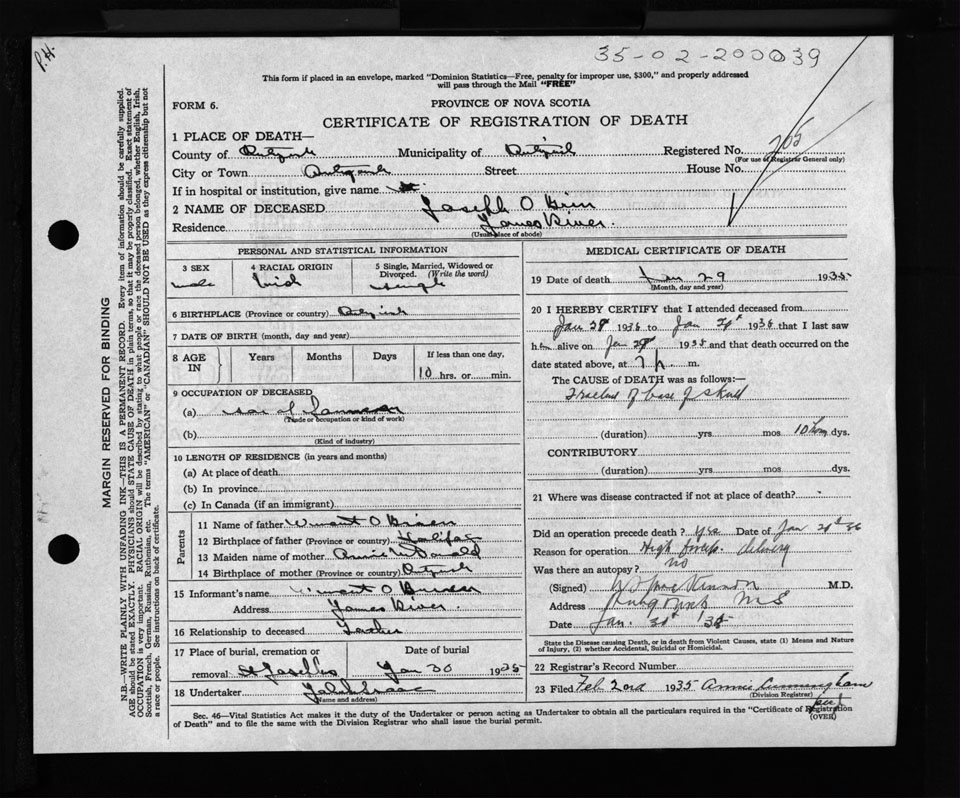 P.H.
35-02-200039
This form if placed in an envelope, marked "Dominion Statistics—Free, penalty for improper use, $300," and properly addressed
will pass through the Mail "FREE"
FORM 6.
PROVINCE OF NOVA SCOTIA
CERTIFICATE OF REGISTRATION OF DEATH
1 PLACE OF DEATH—
County of Municipality of Registered No. 705
(For use of Registrar General only)
City or Town Street House No.
If in hospital or institution, give name
2 NAME OF DECEASED Joseph O
Residence James River.
(Usual place of abode)
MARGIN RESERVED FOR BINDING
N.B.—WRITE PLAINLY WITH UNFADING INK—THIS IS A PERMANENT RECORD. Every item of information should be carefully supplied.
AGE should be stated EXACTLY. PHYSICIANS should STATE CAUSE OF DEATH in plain terms, so that it may be properly classified. Exact statement of
OCCUPATION is very important. RACIAL ORIGIN will be described by stating to what people or race the deceased person belonged, whether English, Irish,
Scottish, French, German, Russian, Ruthenian, etc. The terms "AMERICAN" or "CANADIAN" SHOULD NOT BE USED as they express citizenship but not
a race or people. See instructions on back of certificate.
PERSONAL AND STATISTICAL INFORMATION
3 SEX
male
4 RACIAL ORIGIN
Irish
5 Single, Married, Widowed or
Divorced. (Write the word)
single
6 BIRTHPLACE (Province or country)
7 DATE OF BIRTH (month, day and year)
8 AGE
IN
Years Months Days If less than one day,
10 hrs. or min.
9 OCCUPATION OF DECEASED
(a) son of
(Trade or occupation or kind of work)
(b)
(Kind of industry)
10 LENGTH OF RESIDENCE (in years and months)
(a) At place of death
(b) In province
(c) In Canada (if an immigrant)
Parents
11 Name of father O Brien
12 Birthplace of father (Province or country) Halifax
13 Maiden name of mother Annie McDonald
14 Birthplace of mother (Province or country)
15 Informant's name O
Address James River.
16 Relationship to deceased Father
17 Place of burial, cremation or
removal St Josephs
Date of burial
Jan 30 1935
18 Undertaker Isaac
(Name and address)
MEDICAL CERTIFICATE OF DEATH
19 Date of death Jan 29 1935
(Month, day and year)
20 I HEREBY CERTIFY that I attended deceased from
Jan 1936 to Jan 1936 that I last saw
him alive on Jan 1935 and that death occurred on the
date stated above, at 7 p m.
The CAUSE of DEATH was as follows:—
of base of skull
(duration) yrs. mos. 10 hrs dys.
CONTRIBUTORY
(duration) yrs. mos. dys.
21 Where was disease contracted if not at place of death?
Did an operation precede death? yes Date of Jan
Reason for operation High forceps delivery
Was there an autopsy? no
(Signed) M.D.
Address N S
Date Jan.
State the Disease causing Death, or in death from Violent Causes, state (1) Means and Nature
of Injury, (2) whether Accidental, Suicidal or Homicidal.
22 Registrar's Record Number
23 Filed Feb 2nd 1935 Annie Cunningham
(Division Registrar)
Sec. 46—Vital Statistics Act makes it the duty of the Undertaker or person acting as Undertaker to obtain all the particulars required in the "Certificate of Registration
of Death" and to file the same with the Division Registrar who shall issue the burial permit.
(OVER)